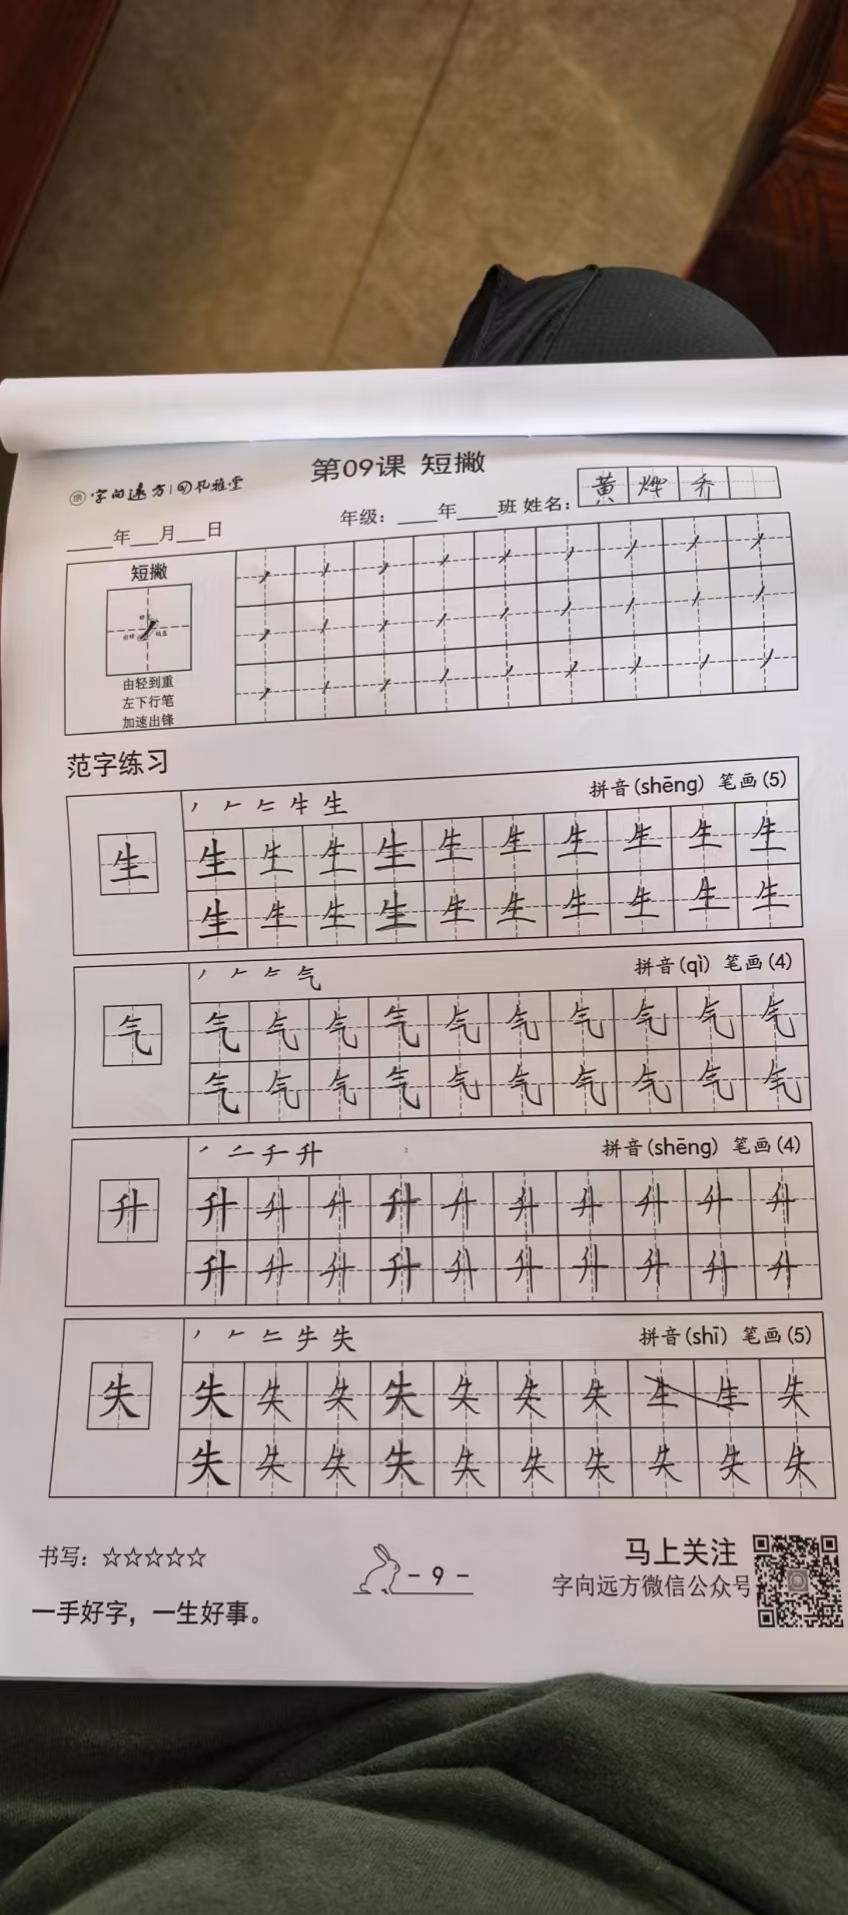 第09课 短撇
字向远方 礼雅堂
年级：____年____班 姓名：黄烨乔
____年___月___日
短撇
由轻到重
左下行笔
加速出锋
范字练习
生 拼音(shēng) 笔画(5)
生
生 生 生 生 生 生 生 生 生 生
生 生 生 生 生 生 生 生 生 生
气 拼音(qì) 笔画(4)
气
气 气 气 气 气 气 气 气 气 气
气 气 气 气 气 气 气 气 气 气
丿 二 千 升 拼音(shēng) 笔画(4)
升
升 升 升 升 升 升 升 升 升 升
升 升 升 升 升 升 升 升 升 升
失 拼音(shī) 笔画(5)
失
失 失 失 失 失 失 失 生 生 失
失 失 失 失 失 失 失 失 失 失
书写：☆☆☆☆☆
一手好字，一生好事。
- 9 -
马上关注
字向远方微信公众号